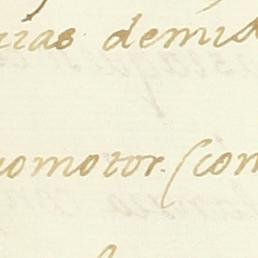 rias demis
omotor. (com